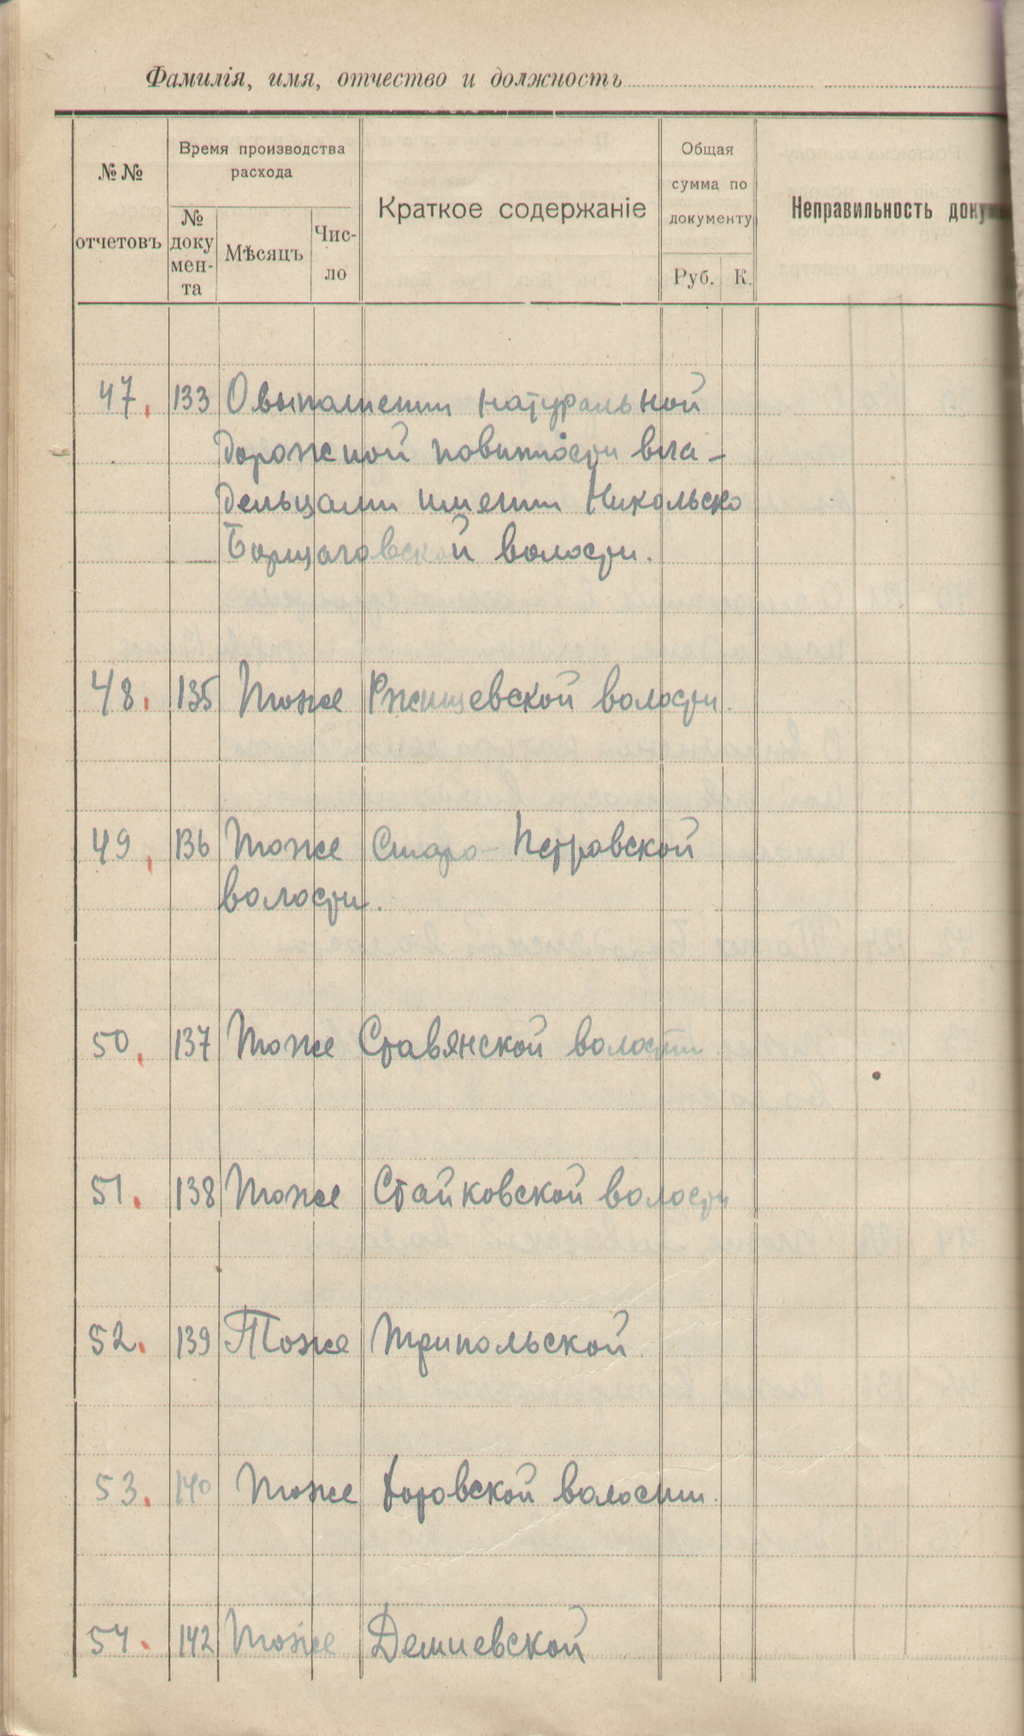 Фамилія, имя, отчество и должность
№№ отчетовъ
Время производства расхода
№ доку мен- та
Мѣсяцъ
Чис- ло
Краткое содержаніе
Общая сумма по документу
Руб. К.
Неправильность доку
47. 133 О выполнении натуральной
дорожной повинности вла-
дельцами имений Никольско
Борщаговской волости.
48. 135 Тоже Ржищевской волости.
49. 136 Тоже Старо-Петровской
волости.
50. 137 Тоже Ставянской волости
51. 138 Тоже Стайковской волости
52. 139 Тоже Трипольской
53. 140 Тоже волости.
54. 142 Тоже Демиевской